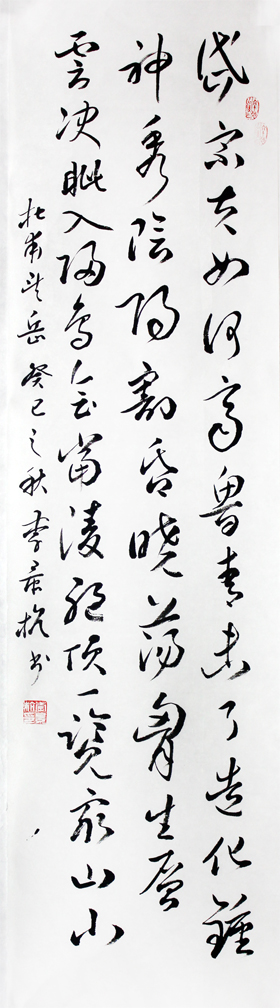 岱宗夫如何齊魯青未了造化鍾
神秀陰陽割昏曉蕩胸生層
雲決眦入歸鳥會當凌絕頂一覽眾山小
杜甫望岳 癸巳之秋 李景杭书